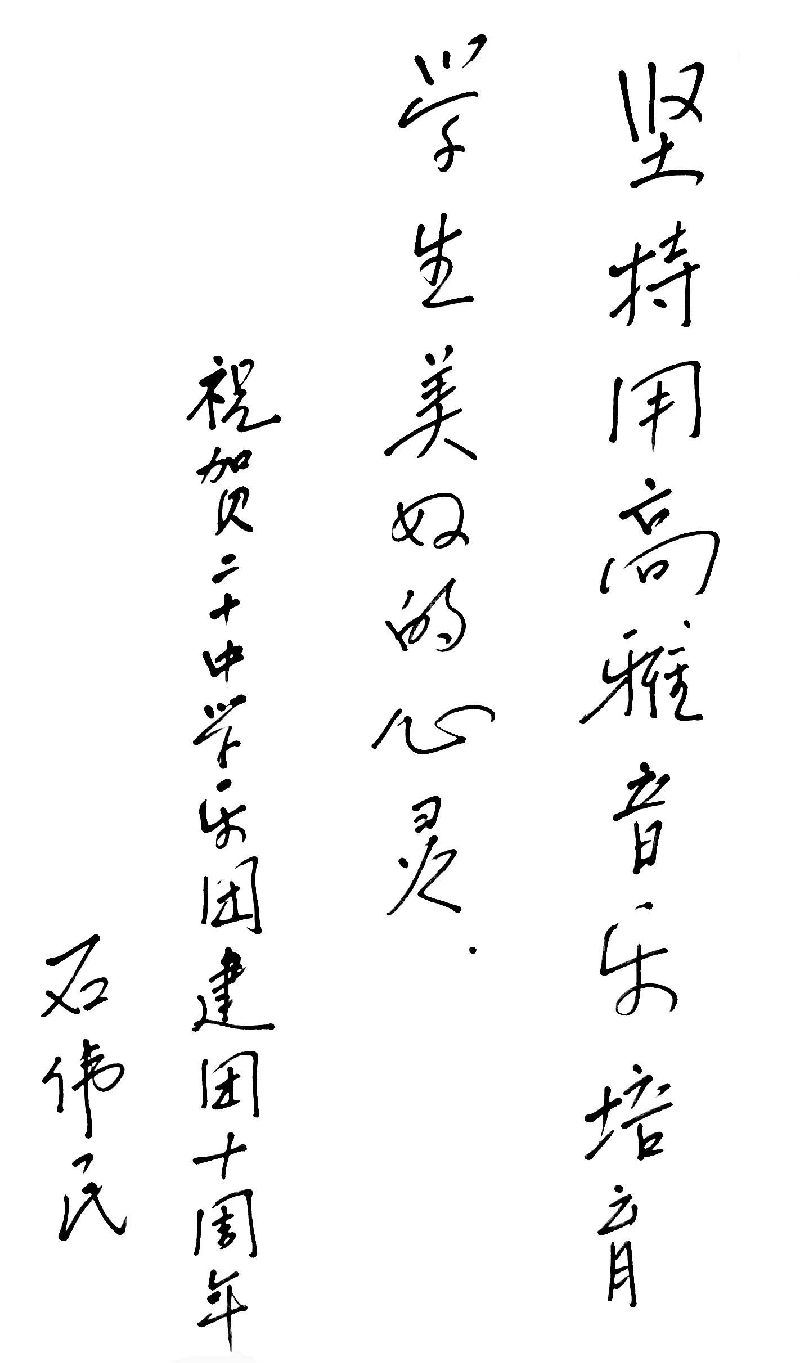 坚持用高雅音乐培育
学生美好的心灵.
祝贺二十中学乐团建团十周年
石伟民